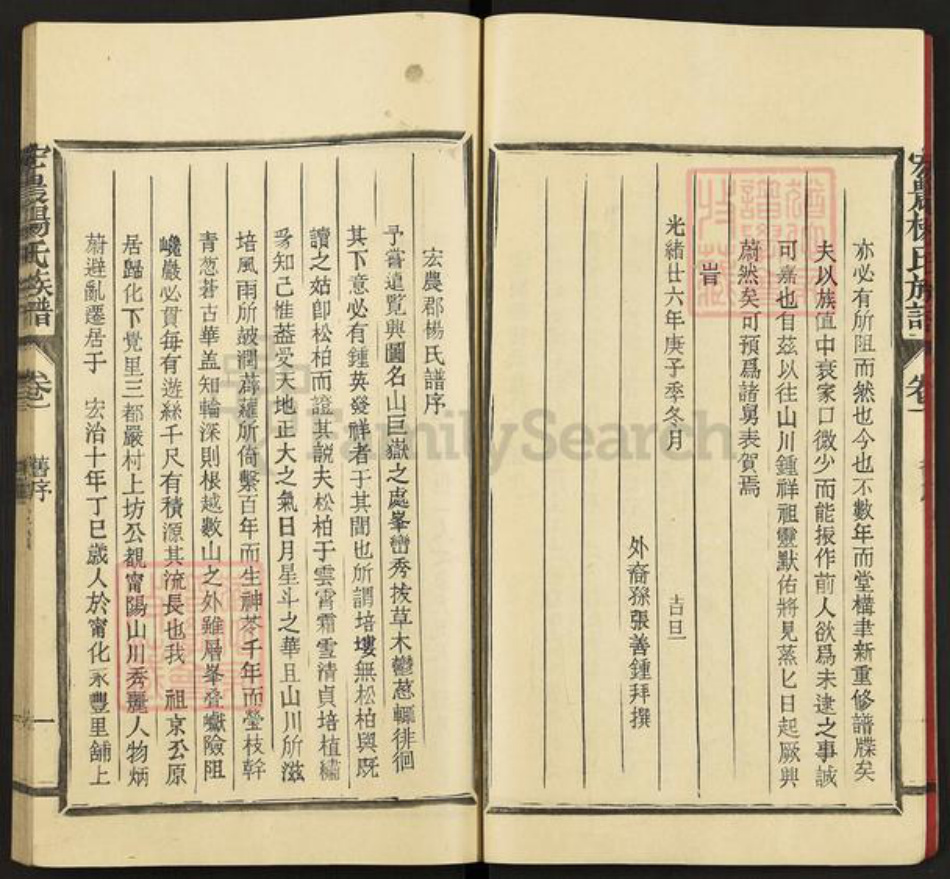 亦必有所阻而然也今也不數年而堂構聿新重修譜牒矣
夫以族值中衰家口微少而能振作前人欲爲未逮之事誠
可嘉也自茲以往山川鍾祥祖靈默佑將見蒸匕日起厥興
蔚然矣可預爲諸舅表賀焉
旹
光緒廿六年庚子季冬月 吉旦
外裔孫張善鍾拜撰
宏農郡楊氏譜序
予嘗遠覽輿圖名山巨嶽之處峯巒秀拔草木鬱葱輒徘徊
其下意必有鍾英發祥者于其間也所謂培塿無松柏與既
讀之姑卽松柏而證其說夫松柏于雲霄霜雪清貞培植繡
知己惟葢受天地正大之氣日月星斗之華且山川所滋
培風雨所皷潤蘿所倚繫百年而生神苓千年而瑩枝幹
青葱蒼古華盖知輪深則根越數山之外雖層峯叠巘險阻
巉巖必貫毎有遊絲千尺有積源其流長也我 祖京公原
居歸化下覺里三都嚴村上坊公覩甯陽山川秀麗人物炳
蔚避亂遷居于 宏治十年丁巳歲人於甯化永豐里舖上
宏農楊氏族譜 卷一 舊序
宏農楊氏族譜 卷一
FamilySearch